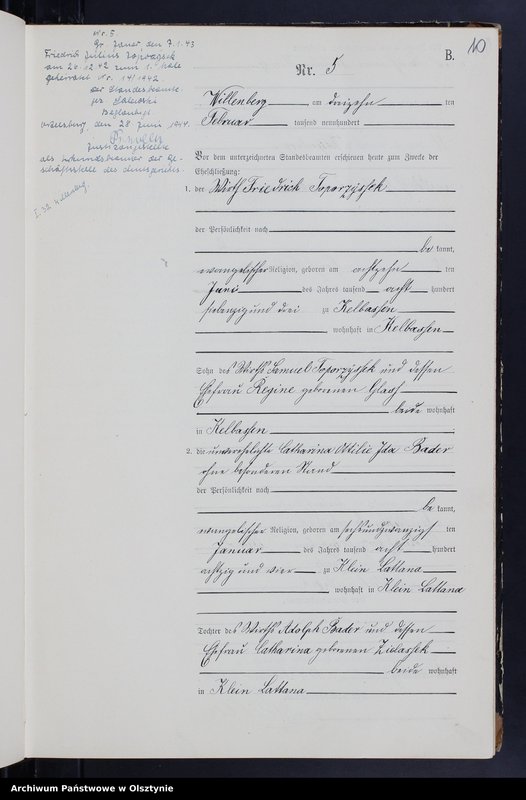 Nr. 5
Gr. Jauer, den 7.1.43
Friedrich Julius
am 24.12.42 zum 1. Male
geheiratet Nr. 14/1942.
der Standesbeamte
gez.
Beglaubigt
Ortelsburg, den 28 Juni 1944.
Justizangestellte
als Urkundsbeamter der Ge-
schäftsstelle des Amtsgerichts.
10
B.
Nr. 5
Willenberg am dreizehn ten
Februar tausend neunhundert
Vor dem unterzeichneten Standesbeamten erschienen heute zum Zwecke der
Eheschließung:
1. der Wirth Friedrich Toporzyssek
der Persönlichkeit nach
be kannt,
evangelischer Religion, geboren am achtzehn ten
Juni des Jahres tausend acht hundert
siebenzig und drei zu Kelbassen
wohnhaft in Kelbassen
Sohn des Wirths Samuel Toporzyssek und dessen
Ehefrau Regine geborenen Glass
beide wohnhaft
in Kelbassen
2. die unverehelichte Catharina Ottilie Ida Bader
ohne besonderen Stand
der Persönlichkeit nach
be kannt,
evangelischer Religion, geboren am sechsundzwanzigs ten
Januar des Jahres tausend acht hundert
achtzig und vier zu Klein Lattana
wohnhaft in Klein Lattana
Tochter des Wirths Adolph Bader und dessen
Ehefrau Catharina geborenen Ziwassek
beide wohnhaft
in Klein Lattana
Archiwum Państwowe w Olsztynie